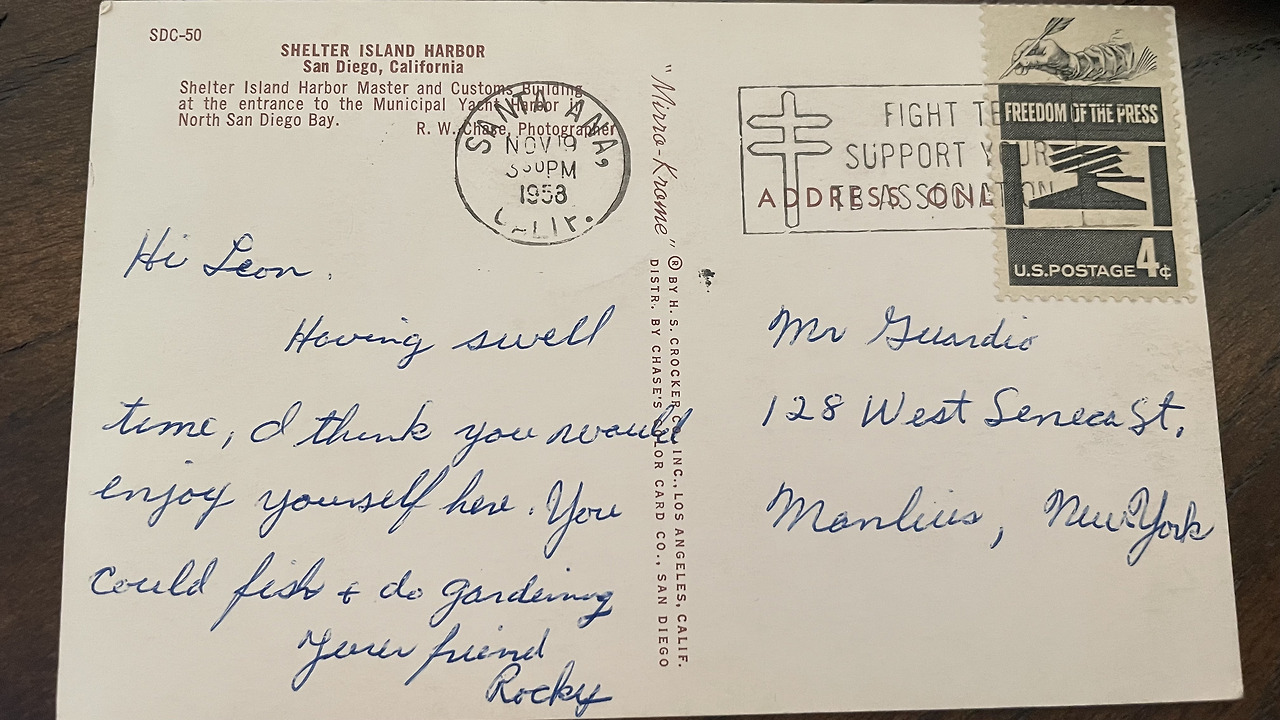 SDC-50
SHELTER ISLAND HARBOR
San Diego, California
Shelter Island Harbor Master and Customs Building
at the entrance to the Municipal Yacht Harbor in
North San Diego Bay.
R. W. Chase, Photographer
SANTA ANA,
NOV 19
330PM
1958
CALIF.
Hi Leon.
Having swell
time, I think you would
enjoy yourself here. You
could fish + do gardening
Your friend
Rocky
"Mirro-Krome" ® BY H. S. CROCKER CO. INC., LOS ANGELES, CALIF.
DISTR. BY CHASE'S COLOR CARD CO., SAN DIEGO
FIGHT TB
SUPPORT YOUR
TB ASSOCIATION
ADDRESS ONLY
FREEDOM OF THE PRESS
U.S. POSTAGE 4¢
Mr Guardio
128 West Seneca St,
Manlius, New York